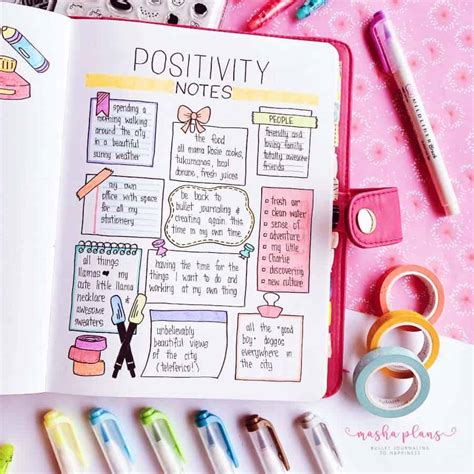 POSITIVITY
NOTES
spending a
morning walking
around the city
in a beautiful
sunny weather
the food
all mama Rosie cooks,
tukumanas, local
donane, fresh juices
PEOPLE
friendly and
loving family
totally awesome
friends
my own
office with space
for all my
stationery
be back to
bullet journaling &
creating again this
time in my own time.
fresh air
clean water
sense of
adventure
my little
Charlie
discovering
new culture
all things
llamas ♥ my
cute little llama
necklace
&
awesome
sweaters
having the time for the
things I want to do and
working at my own thing
unbelievably
beautiful views
of the city
(teleferico!)
all the "good
boy" doggos
everywhere in
the city
masha plans
BULLET JOURNALING
TO HAPPINESS